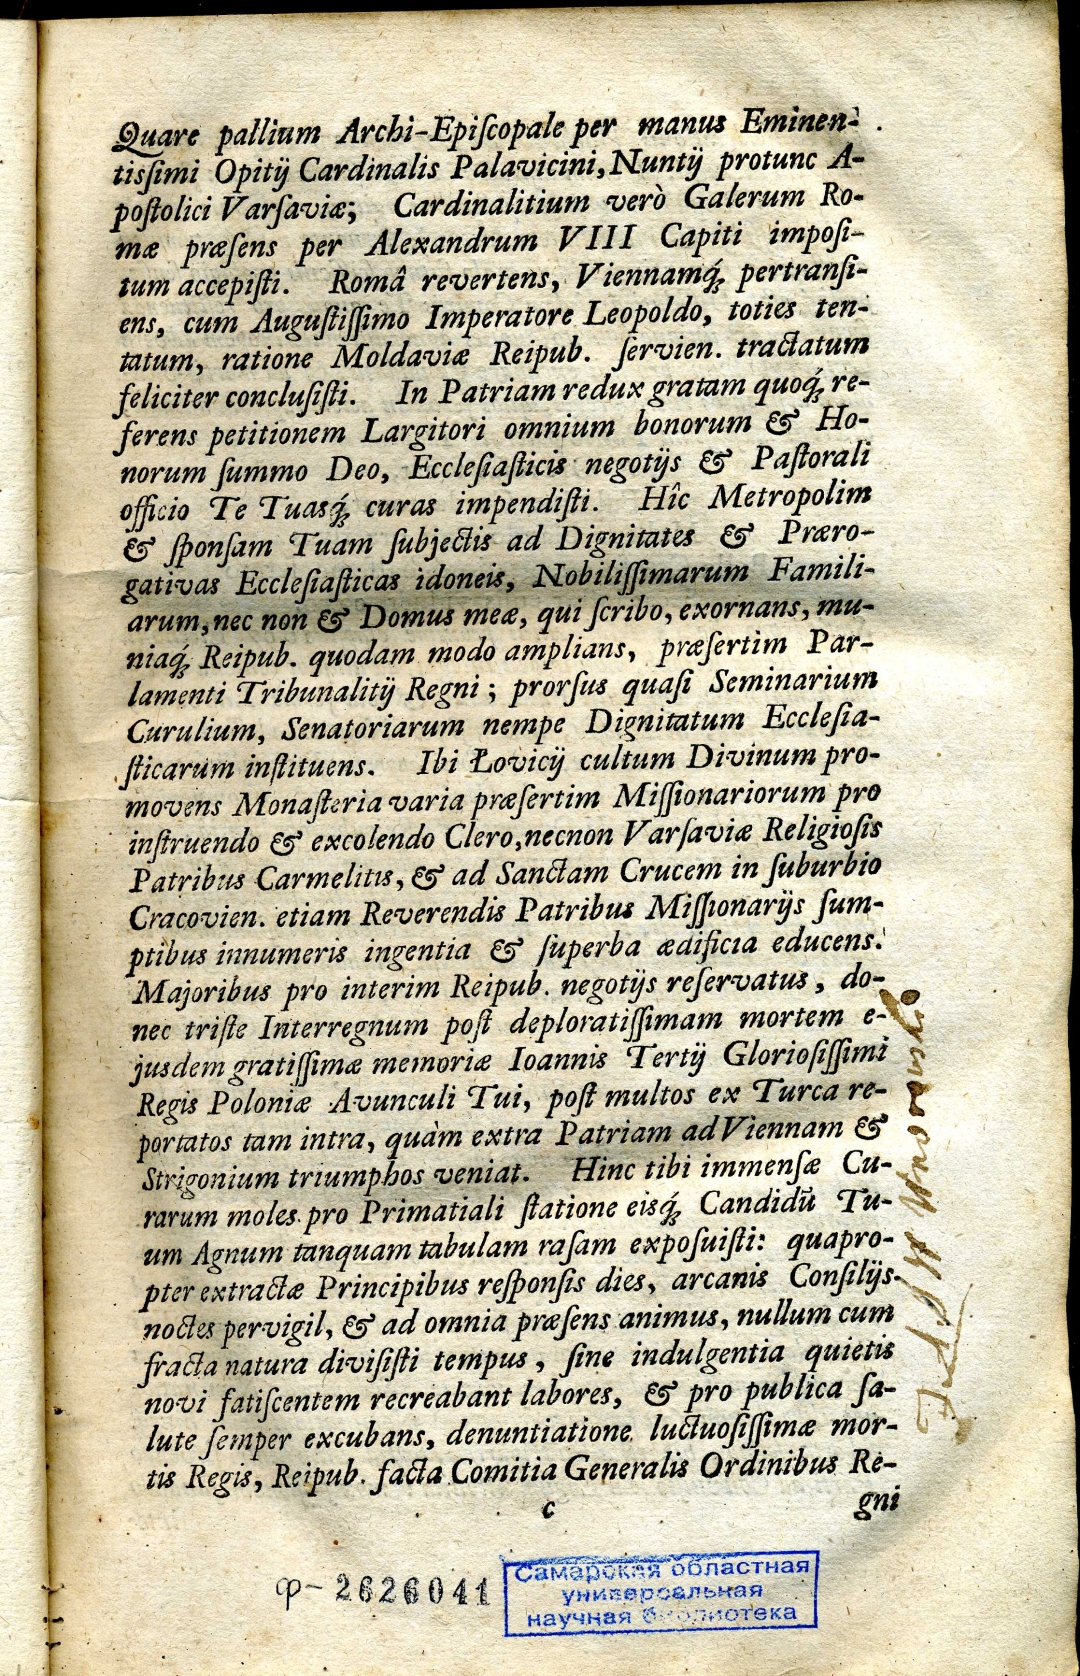 Quare pallium Archi-Epiſcopale per manus Eminen-
tisſimi Opitij Cardinalis Palavicini, Nuntij protunc A-
poſtolici Varſaviæ; Cardinalitium verò Galerum Ro-
mæ præſens per Alexandrum VIII Capiti impoſi-
tum accepiſti. Româ revertens, Viennamq́; pertranſi-
ens, cum Auguſtiſſimo Imperatore Leopoldo, toties ten-
tatum, ratione Moldaviæ Reipub. ſervien. tractatum
feliciter concluſiſti. In Patriam redux gratam quoq́; re-
ferens petitionem Largitori omnium bonorum & Ho-
norum ſummo Deo, Eccleſiaſticis negotijs & Paſtorali
officio Te Tuasq́; curas impendiſti. Hîc Metropolim
& ſponſam Tuam ſubjectis ad Dignitates & Præro-
gativas Eccleſiaſticas idoneis, Nobiliſſimarum Famili-
arum, nec non & Domus meæ, qui ſcribo, exornans, mu-
niaq́; Reipub. quodam modo amplians, præſertim Par-
lamenti Tribunalitij Regni; prorſus quaſi Seminarium
Curulium, Senatoriarum nempe Dignitatum Eccleſia-
ſticarum inſtituens. Ibi Łovicij cultum Divinum pro-
movens Monaſteria varia præſertim Miſſionariorum pro
inſtruendo & excolendo Clero, necnon Varſaviæ Religioſis
Patribus Carmelitis, & ad Sanctam Crucem in ſuburbio
Cracovien. etiam Reverendis Patribus Miſſionarijs ſum-
ptibus innumeris ingentia & ſuperba ædificia educens.
Majoribus pro interim Reipub. negotijs reſervatus, do-
nec triſte Interregnum poſt deploratiſſimam mortem e-
jusdem gratiſſimæ memoriæ Ioannis Tertij Glorioſiſſimi
Regis Poloniæ Avunculi Tui, poſt multos ex Turca re-
portatos tam intra, quàm extra Patriam ad Viennam &
Strigonium triumphos veniat. Hinc tibi immenſæ Cu-
rarum moles pro Primatiali ſtatione eisq́; Candidū Tu-
um Agnum tanquam tabulam raſam expoſuiſti: quapro-
pter extractæ Principibus reſponſis dies, arcanis Conſilijs
noctes pervigil, & ad omnia præſens animus, nullum cum
fracta natura diviſiſti tempus, ſine indulgentia quietis
novi fatiſcentem recreabant labores, & pro publica ſa-
lute ſemper excubans, denuntiatione luctuoſiſſimæ mor-
tis Regis, Reipub. facta Comitia Generalis Ordinibus Re-
c gni
ф-2626041
Самарская областная
универсальная
научная библиотека